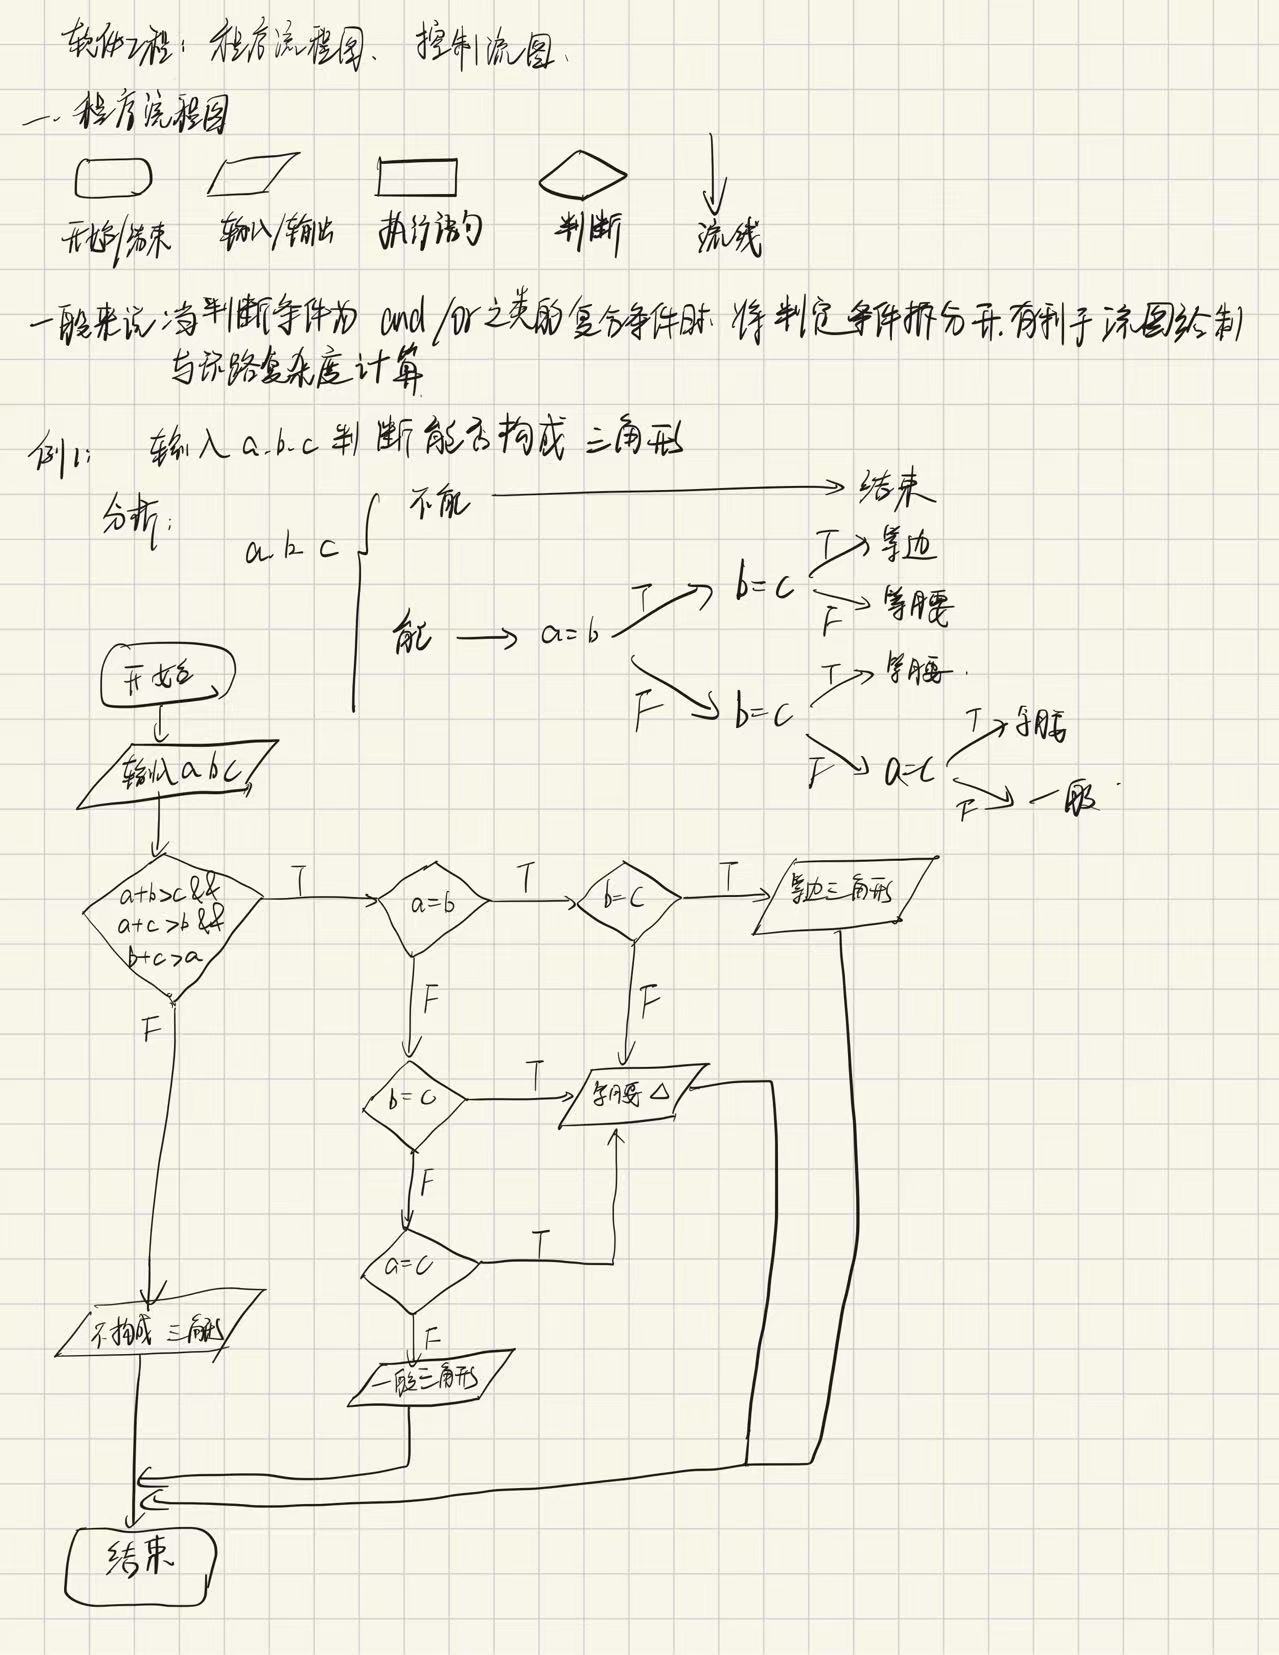 软件工程：程序流程图、控制流图、
一.程序流程图
开始/结束 输入/输出 执行语句 判断 流线
一般来说:当判断条件为 and/or之类的复合条件时.将判定条件拆分开.有利于流图绘制
与环路复杂度计算
例1: 输入a.b.c判断能否构成三角形
分析:
a.b c
不能 结束
能 a=b
T b=c T 等边
F 等腰
F b=c T 等腰.
F a=c T 等腰
F 一般.
开始
输入abc
a+b>c&&
a+c>b&&
b+c>a
T a=b T b=c T 等边三角形
F F F
b=c T 等腰△
F
a=c T
F
不构成三角形
一般三角形
结束